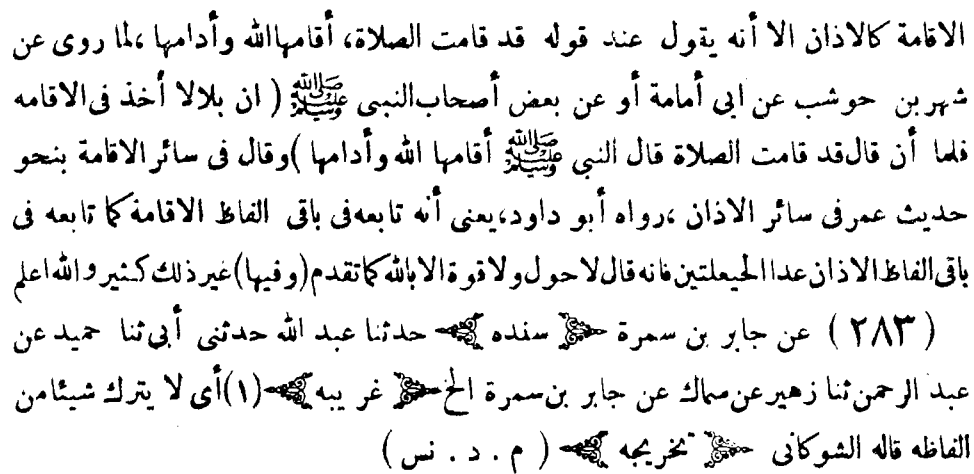 الاقامة كالاذان الا أنه يقول عند قوله قد قامت الصلاة، أقامها الله وأدامها ،لما روى عن
شهر بن حوشب عن ابى أمامة أو عن بعض أصحاب النبى ﷺ ( ان بلالا أخذ فى الاقامه
فلما أن قال قد قامت الصلاة قال النبي ﷺ أقامها الله وأدامها )وقال فى سائر الاقامة بنحو
حديث عمر فى سائر الاذان ،رواه أبو داود،يعنى أنه تابعه فى باقى الفاظ الاقامة كما تابعه فى
باقى الفاظ الاذان عدا الحيعلتين فانه قال لا حول ولا قوة الا بالله كما تقدم(وفيها)غير ذلك كثير والله اعلم
( ٢٨٣ ) عن جابر بن سمرة سنده حدثنا عبد الله حدثنى أبى ثنا حميد عن
عبد الرحمن ثنا زهير عن سماك عن جابر بن سمرة الخ غريبه (١)أى لا يترك شيئا من
الفاظه قاله الشوكانى تخريجه ( م . د . نس )